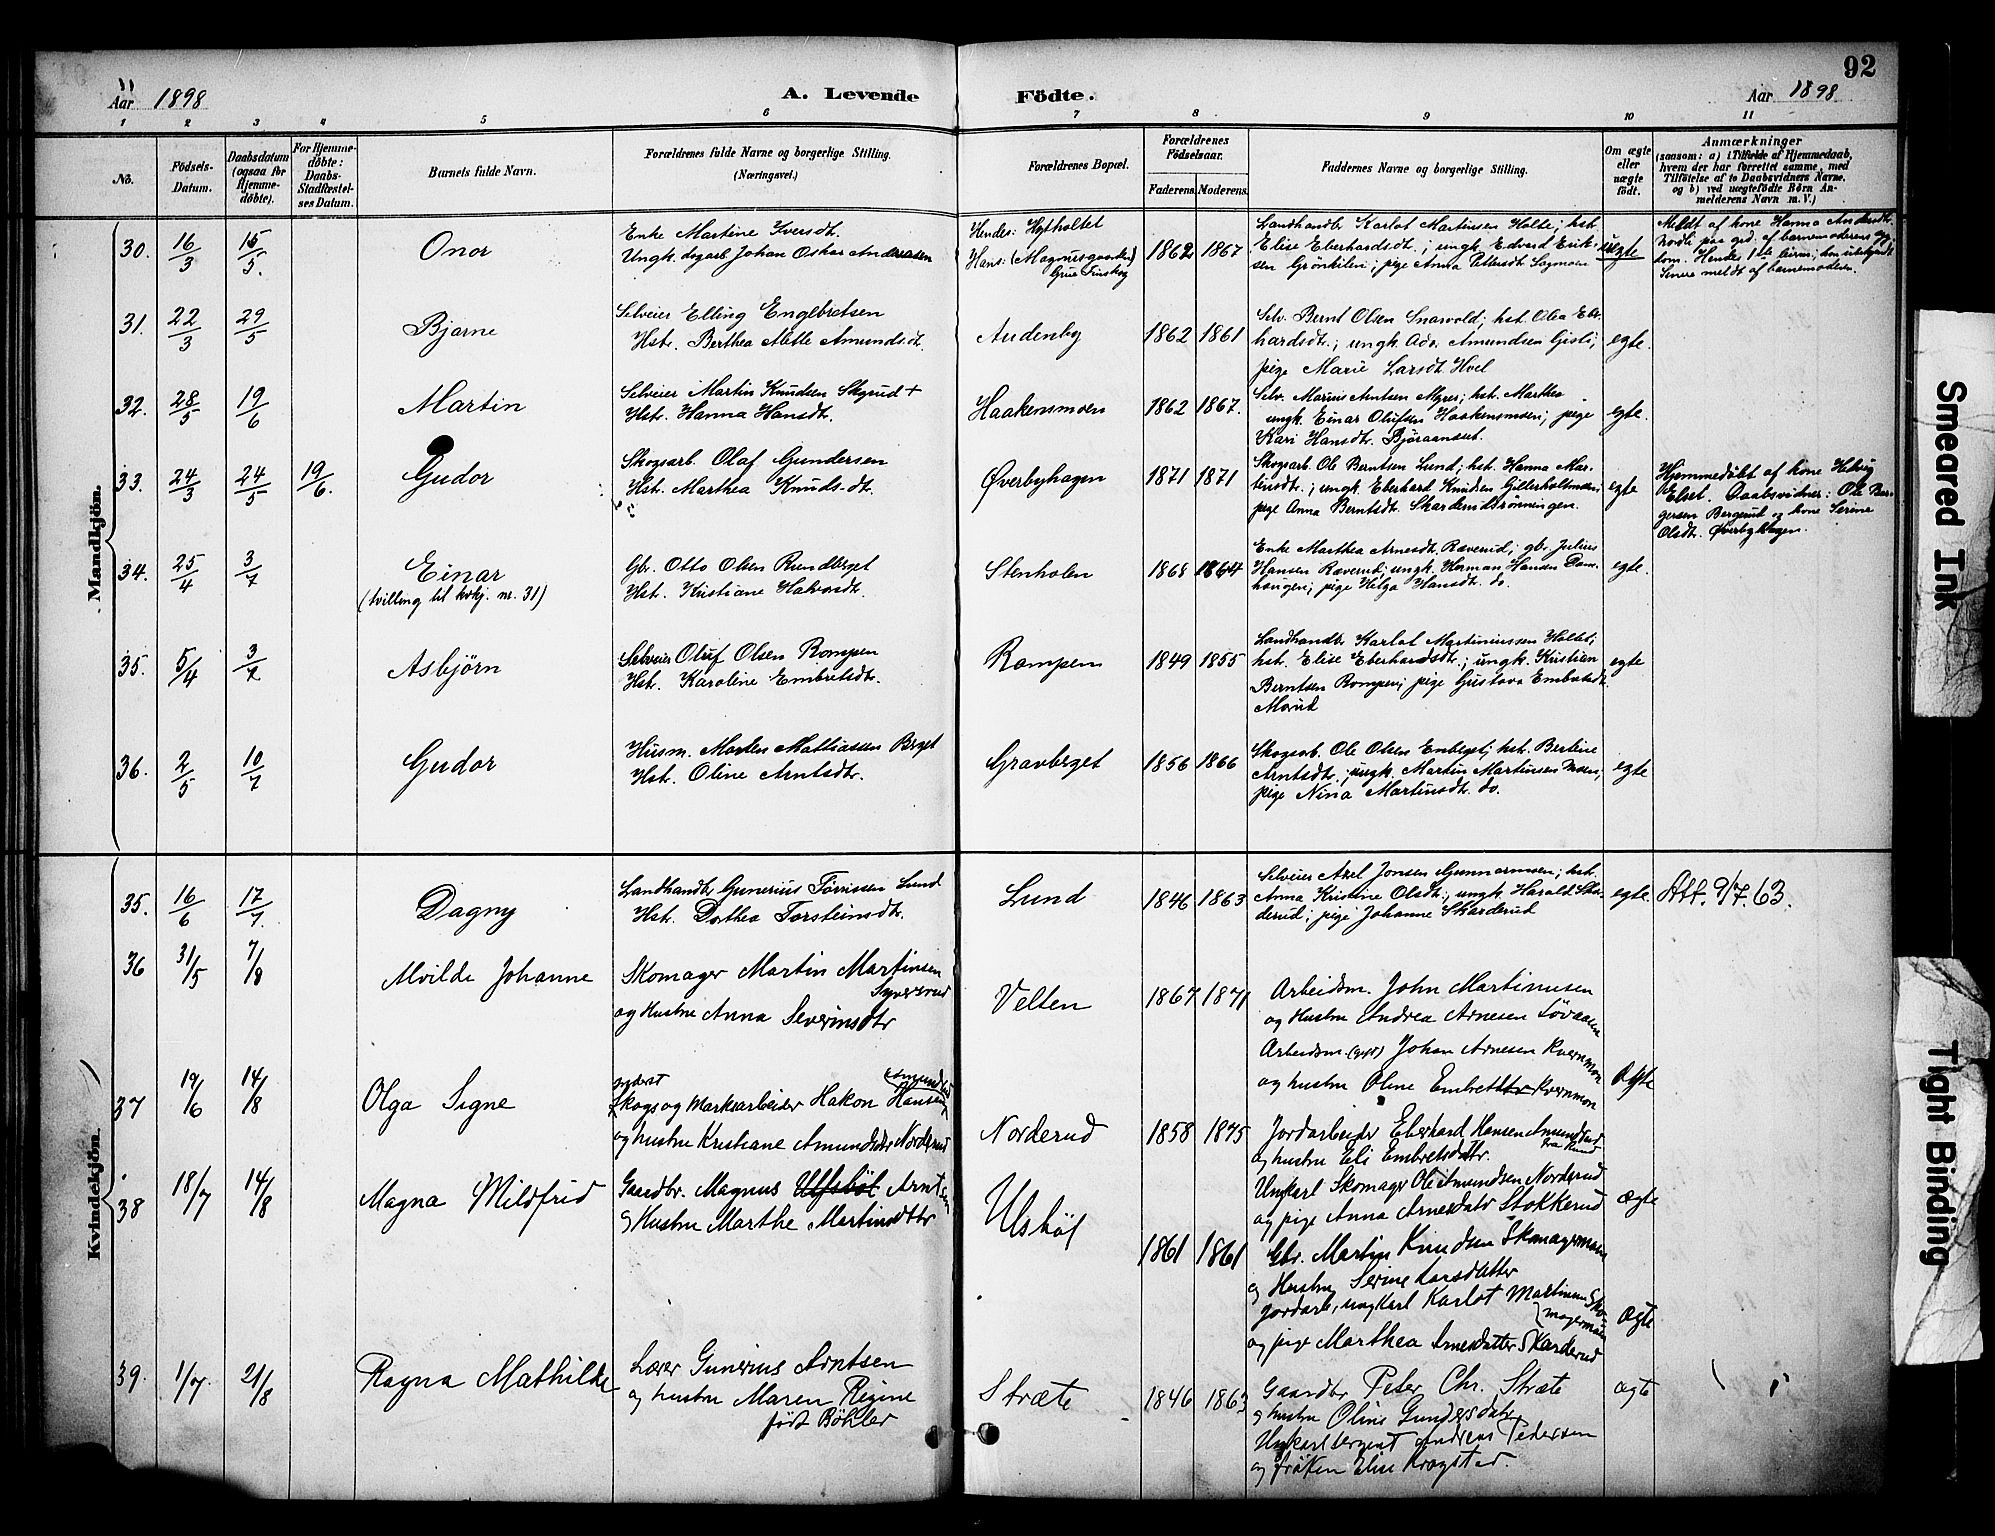 92
Aar 1898
A. Levende
Födte.
Aar 1898
1 2 3 4 5 6 7 8 9 10 11
No.
Födsels-
Datum.
Daabsdatum
(ogsaa for
Hjemme-
döbte).
For Hjemme-
döbte:
Daabs-
Stadfæstel-
ses Datum.
Barnets fulde Navn.
Forældrenes fulde Navne og borgerlige Stilling.
(Næringsvei.)
Forældrenes Bopæl.
Forældrenes
Födselsaar.
Faderens. Moderens.
Faddernes Navne og borgerlige Stilling.
Om ægte
eller
uægte
födt.
Anmærkninger
(saasom: a) i Tilfælde af Hjemmedaab,
hvem der har forrettet samme, med
Tilföielse af to Daabsvidners Navne,
og b) ved uægtefödte Börn An-
melderens Navn m. V.)
Mandkjön.
30. 16/3 15/5. Onor
Enke Martine Iversdt.
Ungk. dagarb. Johan Oskar Andreassen
Hendes: Hytholtet
Hans: (Magnusgaarden)
Grue Finskog
1862 1867
Landhandl. Karlot Martinsen Holte; hst.
Elise Eberhardsdt.; ungk. Edvard Erik-
sen Grönkilen; pige Anna Pettersdt. Sagmoen
uegte
Meldt af kone Hanna Andersdt.
31. 22/3 29/5 Bjarne
Selveier Elling Engebretsen
Hst. Berthea Mette Amundsdt.
Audenby
1862 1861
Selv. Bernt Olsen Snarvold; hst. Olea Eb-
hardsdt.; ungk. Adr. Amundsen Gisti;
pige Marie Larsdt. Hvel
egte.
32. 28/5 19/6 Martin
Selveier Martin Knudsen Skyrud +
Hst. Hanna Hansdt.
Haakensmoen
1862 1867.
Selv. Marius Antsen Myrer; hst. Marthea
ungk. Einar Olufsen Haakensmoen; pige
Kari Hansdt. Björaanæset.
egte.
33. 24/3 24/5 19/6. Gudor
Skogsarb. Olaf Gundersen
Hst. Marthea Knuds.dt.
Øverbyhagen
1871 1871
Skogsarb. Ole Berntsen Lund; hst. Hanna Mar-
tinsdt.; ungk. Eberhard Knudsen Gilterholtmoen;
pige Anna Berntsdt. Skarderudsrönningen.
egte
Hjemmedöbt af kone Hedvig
Elset. Daabsvidner: Ole Bir-
gersen Bergerud og kone Serine
Olsdt. Øverbyhagen.
34. 25/4 3/7 Einar
(tvilling til kvkj. nr. 31)
Gbr. Otto Olsen Rundberget
Hst. Kristiane Halvorsdt.
Stenholen
1868 1864
Enke Marthea Arnesdt. Ræverud; gbr. Julius
Hansen Ræverud; ungk. Herman Hansen Dam-
haugen; pige Helga Hansdt. do.
egte.
35. 5/4 3/7 Asbjørn
Selveier Oluf Olsen Rompen
Hst. Karoline Embretsdt.
Rompen
1849 1855
Landhandler Karlot Martiniussen Holtet;
hst. Elise Eberhardsdt.; ungk. Kristian
Berntsen Rompen; pige Gustava Embretsdt.
Morud
egte
36. 2/5 10/7 Gudor
Husm. Morten Mattiassen Berget
Hst. Oline Arntsdt.
Gravberget
1856 1866
Skogsarb. Ole Olsen Enberget; hst. Bertine
Arntsdt.; ungk. Martin Martinsen Moen;
pige Nina Martinsdt. do.
egte
Kvindekjön.
35. 16/6 17/7. Dagny
Landhandl. Gunerius Tòvissen Lund
Hst. Dorthea Torsteinsdt.
Lund
1846 1863
Selveier Axel Jonsen Gunnarmoen; hst.
Anna Kristine Olsdt.; ungk. Harald Skar-
derud; pige Johanne Skarderud
egte.
Att. 9/7.63.
36 31/5 7/8 Alvilde Johanne
Skomager Martin Martinsen
Syversrud
og Hustru Anna Severinsdtr
Velten
1867 1871
Arbeidsm. John Martinusen
og Hustru Andrea Arnesen Lövaasen
Arbeidsm. (gift) Johan Arnesen Kvernmon
og hustru Oline Embretsdtr Kvernmon
Ægte
37 19/6 14/8 Olga Signe
Skogs og Markarbeider Hakon Hansen
og hustru Kristiane Amundsdtr Norderud
Norderud
1858 1875
Jordarbeider Eberhard Hansen Amundrud
og hustru Eli Embretsdtr.
Unkarl Skomager Ole Amundsen Norderud
og pige Anna Arnesdatr Stokkerud
ægte
38 18/7 14/8 Magna Mildfrid
Gaardbr. Magnus Ulfsböl Arntsen
og Hustru Marthe Martinsdttr
Ulsböl
1861 1861
Gbr. Martin Knudsen Skomagermoen
og Hustru Serine Larsdatter
Jordarb. ungkarl Karlot Martinsen Sko-
magermoen
og pige Marthea Arnesdatter Skarderud
Ægte
39. 1/7 21/8 Ragna Mathilde
Lærer Gunerius Arntsen
og hustru Maren Regine
født Böhler
Stræte
1846 1863
Gaardbr Peter Chr. Stræte
og hustru Oline Gundersdatr
Unkarl sergent Andreas Pedersen
og frøken Elise Krogstad.
ægte
Smeared Ink
Tight Binding